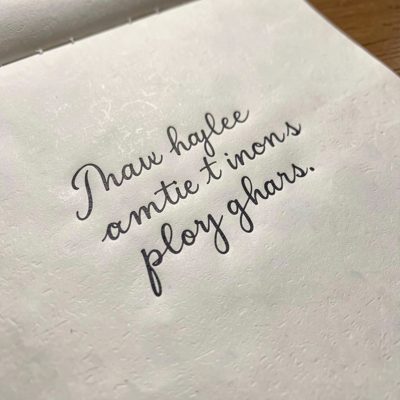 Thaw haylee
amtie t inons
ploy ghars.